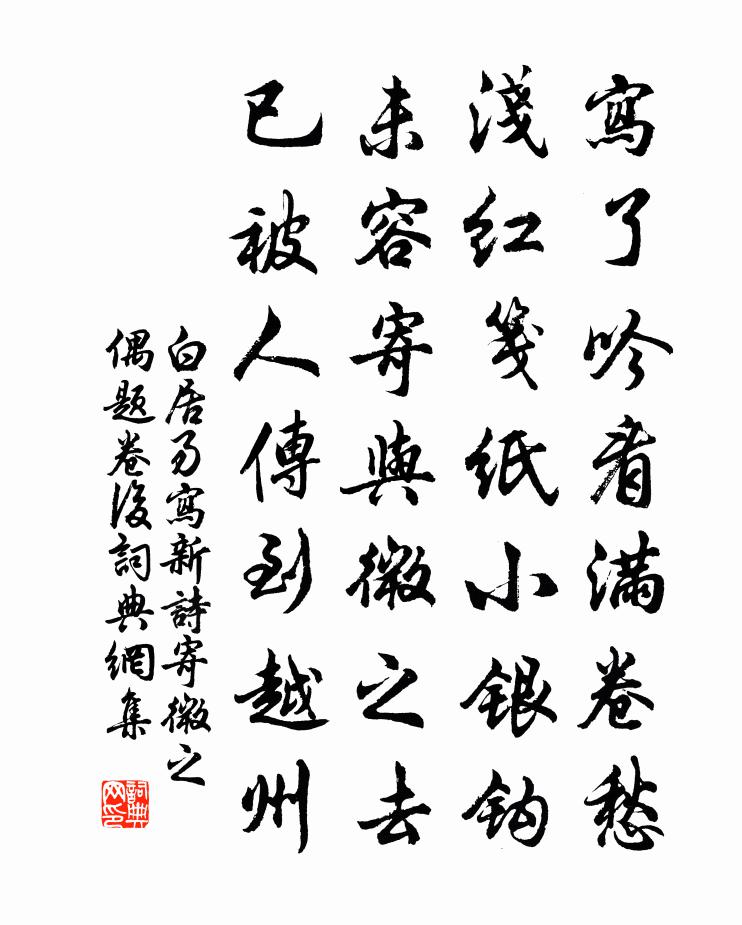 寫了吟看滿卷愁
淺紅箋紙小銀鈎
未容寄與微之去
已被人傳到越州
白居易寫新詩寄微之
偶題卷後詞典網集
詞典
网印